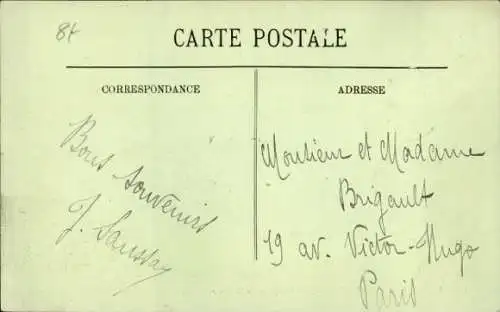 8f
CARTE POSTALE
CORRESPONDANCE
ADRESSE
Bons souvenirs
J. Saussay
Monsieur et Madame
Brigault
19 av. Victor-Hugo
Paris